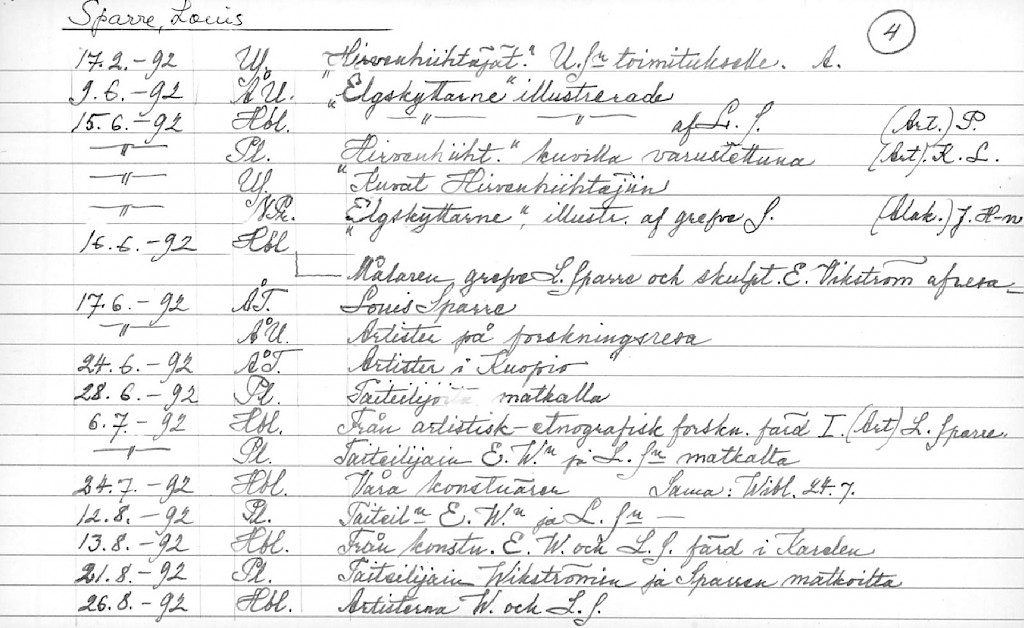 Sparre, Louis
4
17.2.-92 Uf. "Hirvenhiihtäjät." U.S:n toimitukselle. A.
9.6.-92 Å.U. "Elgskyttarne" illustrerade
15.6.-92 Hbl. —"— —"— af L. S. (Art.) P.
—"— Pl. "Hirvenhiiht." kuvilla varustettuna (Art). K. L.
—"— Uf. "Kuvat Hirvenhiihtäjiin
—"— N.Pr. "Elgskyttarne", illustr. af grefve S. (Alak.) J. H-n
16.6.-92 Hbl
Målaren grefve L. Sparre och skulpt. E. Vikström afresa
17.6.-92 Å.T. Louis Sparre
—"— Å.U. Artister på forskningsresa
24.6.-92 Å.T. Artister i Kuopio
28.6.-92 Pl. matkalla
6.7.-92 Hbl. Från artistisk-etnografisk forskn. färd I. (Art) L. Sparre.
—"— Pl. Taiteilijain E. W:n ja L. S:n matkalta
24.7.-92 Hbl. Våra konstnärer Sama: Wibl. 24.7.
12.8.-92 Pl. Taiteil:n E. W:n ja L. S:n —
13.8.-92 Hbl. Från konstn. E. W. och L. S. färd i Karelen
21.8.-92 Pl. Taiteilijain Wikströmin ja Sparren matkoilta
26.8.-92 Hbl. Artisterna W. och L. S.